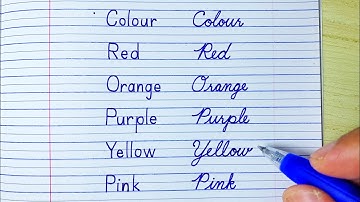 Colour Colour
Red Red
Orange Orange
Purple Purple
Yellow Yellow
Pink Pink